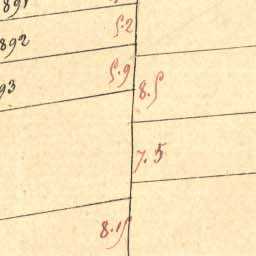 891
892
5.2
5.9
93
8.5
7.5
8.15